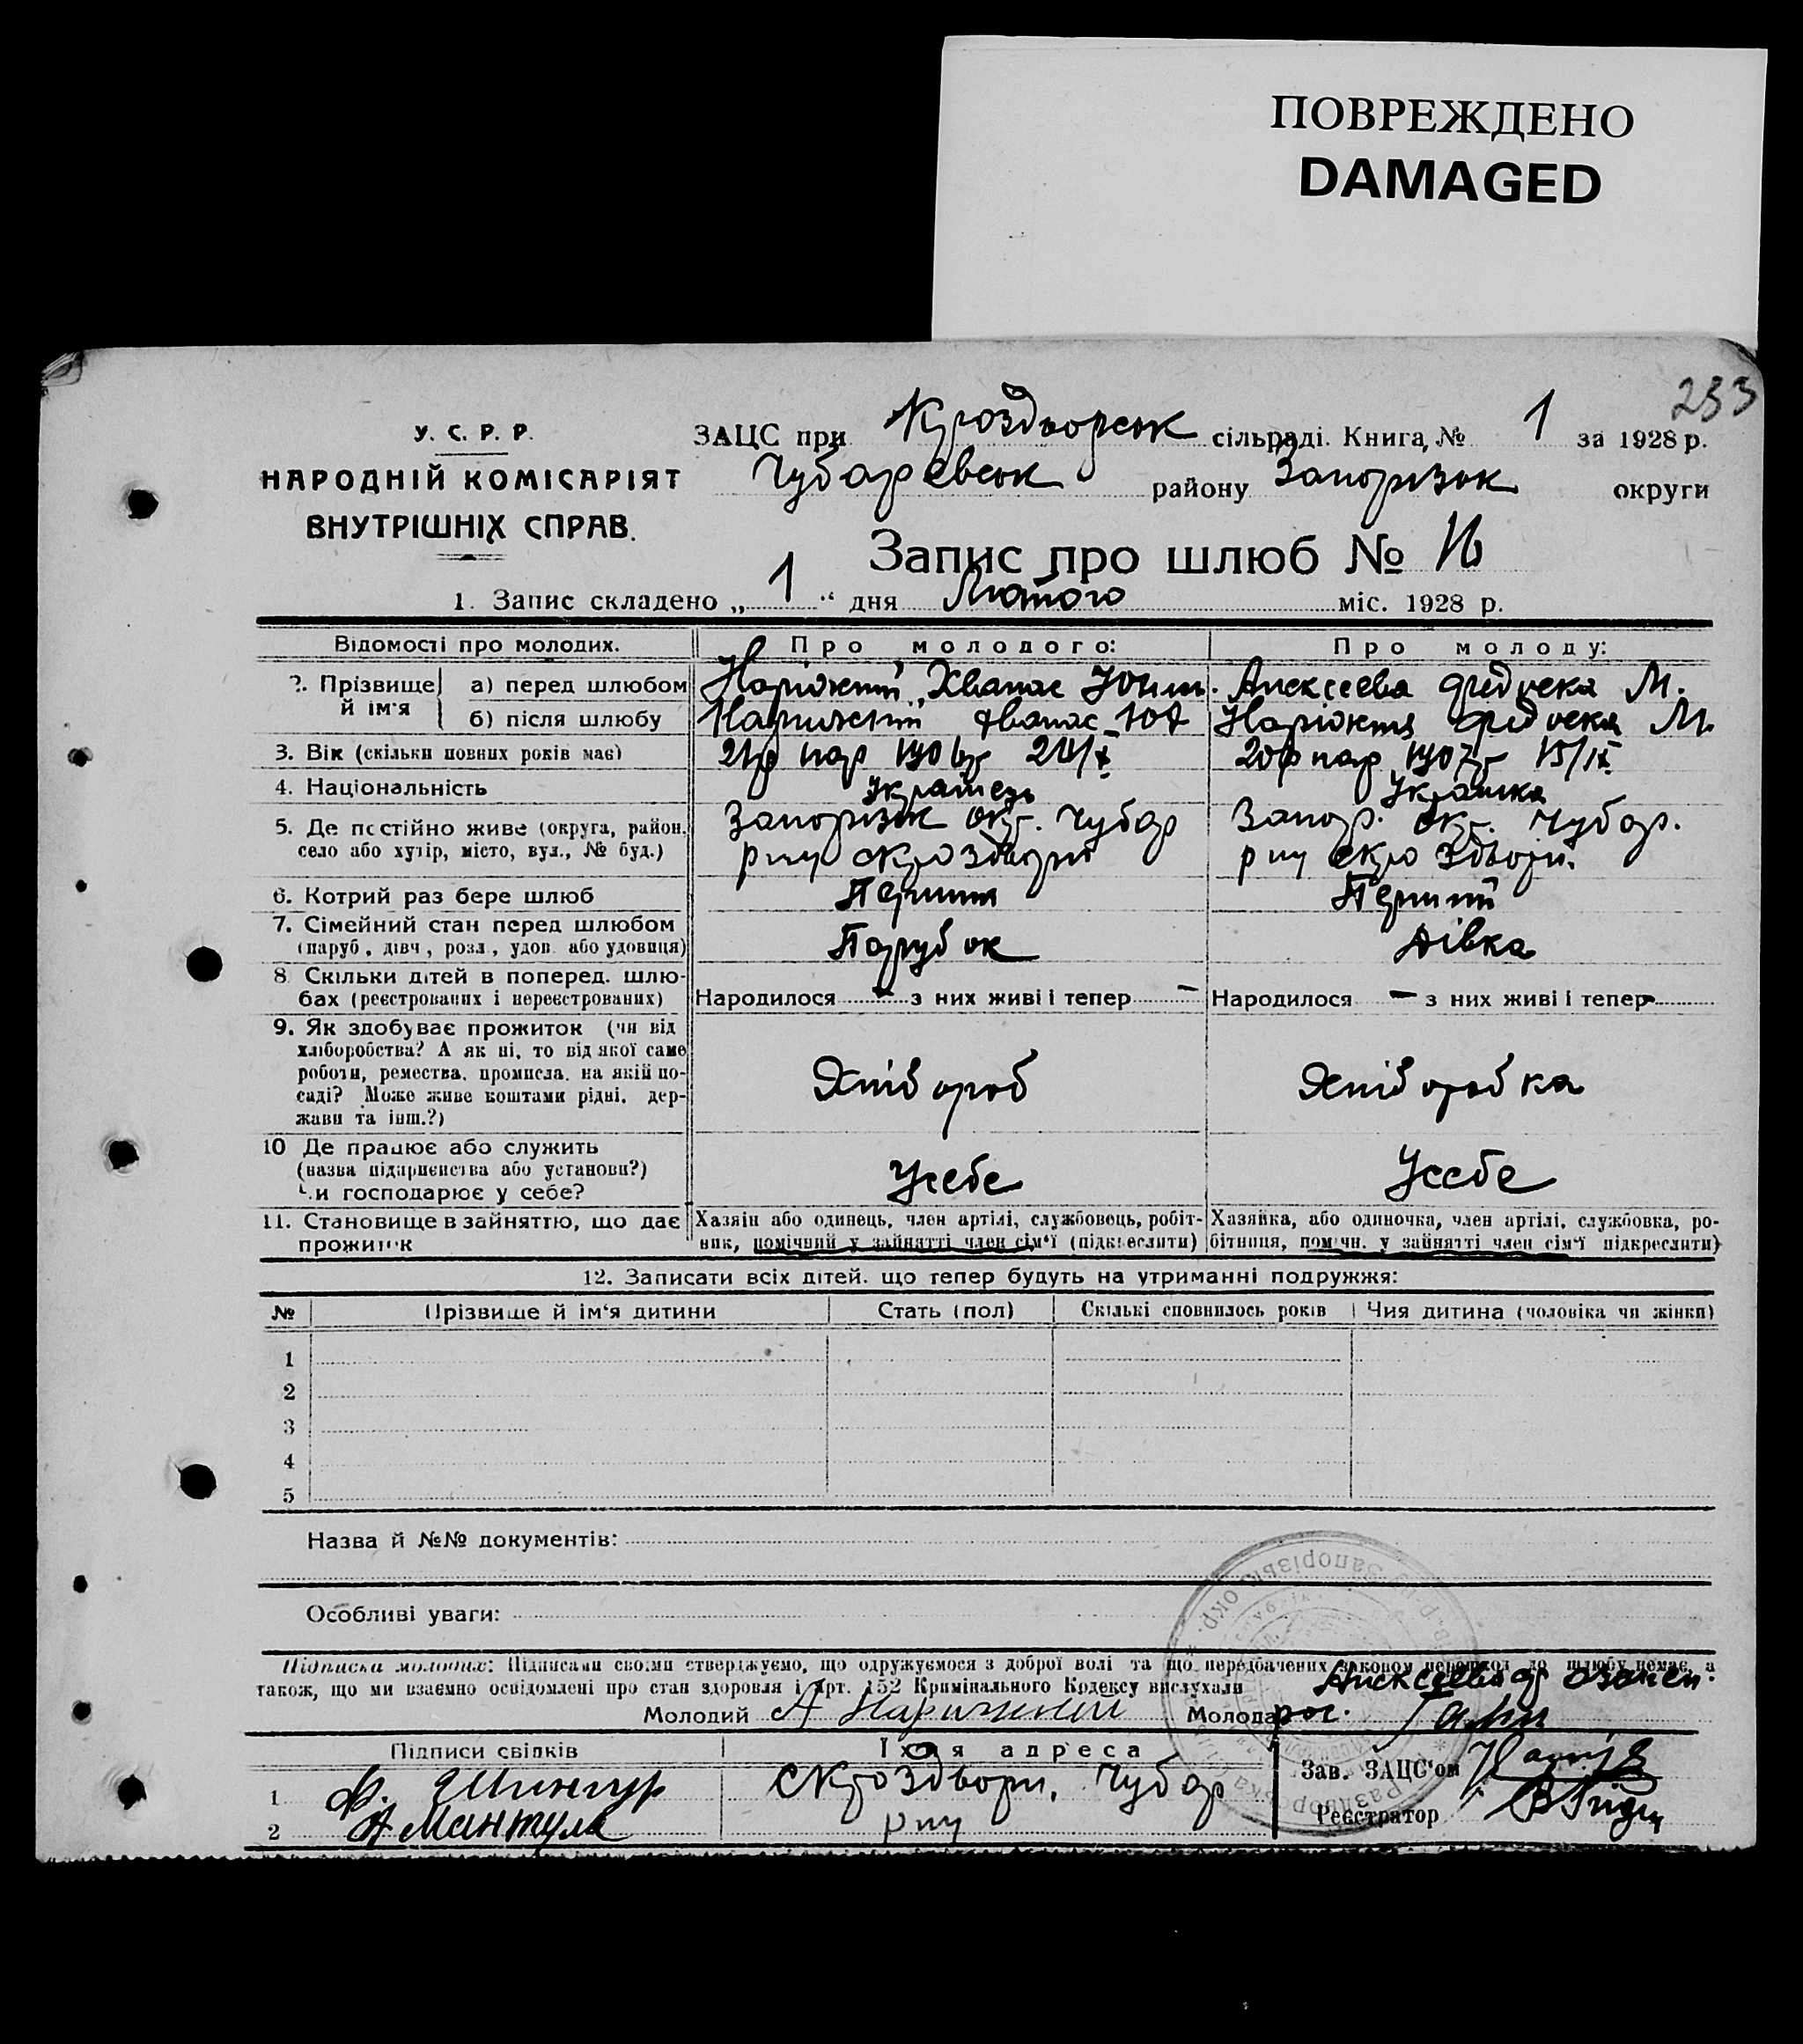 ПОВРЕЖДЕНО
DAMAGED
233
У. С. Р. Р.
НАРОДНІЙ КОМІСАРІЯТ
ВНУТРІШНІХ СПРАВ.
ЗАЦС при сільраді. Книга № 1 за 1928 р.
Чубаревськ району Запорізьк округи
Запис про шлюб №
1. Запис складено „ 1 “ дня Лютого міс. 1928 р.
Відомості про молодих. Про молодого: Про молоду:
2. Прізвище й ім'я
а) перед шлюбом Хванас Алексеева М.
б) після шлюбу М.
3. Вік (скільки повних років має) 21р нар 1906р 20р нар 1907р 15/IX
4. Національність Українець Українка
5. Де постійно живе (округа, район, Запорізьк окр. Чубар Запор. окр. Чубар.
село або хутір, місто, вул., № буд.) рну рну
6. Котрий раз бере шлюб Перший Перший
7. Сімейний стан перед шлюбом
(паруб., дівч., розл., удов. або удовиця) Парубок Дівка
8. Скільки дітей в поперед. шлю-
бах (реєстрованих і нереєстрованих) Народилося – з них живі і тепер – Народилося – з них живі і тепер –
9. Як здобуває прожиток (чи від
хліборобства? А як ні, то від якої саме
роботи, ремества, промисла, на якій по-
саді? Може живе коштами рідні, дер-
жави та інш.?)
Хлібороб Хліборобка
10 Де працює або служить
(назва підприємства або установи?)
Чи господарює у себе? Усебе Усебе
11. Становище в зайняттю, що дає
прожиток
Хазяїн або одинець, член артілі, службовець, робіт-
ник, помічний у зайнятті член сім'ї (підкреслити)
Хазяйка, або одиночка, член артілі, службовка, ро-
бітниця, помічн. у зайнятті член сім'ї підкреслити)
12. Записати всіх дітей, що тепер будуть на утриманні подружжя:
№ Прізвище й ім'я дитини Стать (пол) Скількі сповнилось років Чия дитина (чоловіка чи жінки)
1
2
3
4
5
Назва й №№ документів:
Особливі уваги:
Підписка молодих: Підписами своїми стверджуємо, що одружуємося з доброї волі та що передбачених законом перешкод до шлюбу немає, а
також, що ми взаємно освідомлені про стан здоровля і Арт. 152 Кримінального Кодексу вислухали
Молодий А Нарижний Молода рос.
Підписи свідків Їхня адреса
1 Ф. Чубар
2 А Мантула рну
Зав. ЗАЦС'ом
Реєстратор
Запорізьк. окр.